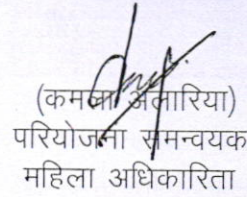 (कमला अलारिया)
परियोजना समन्वयक
महिला अधिकारिता